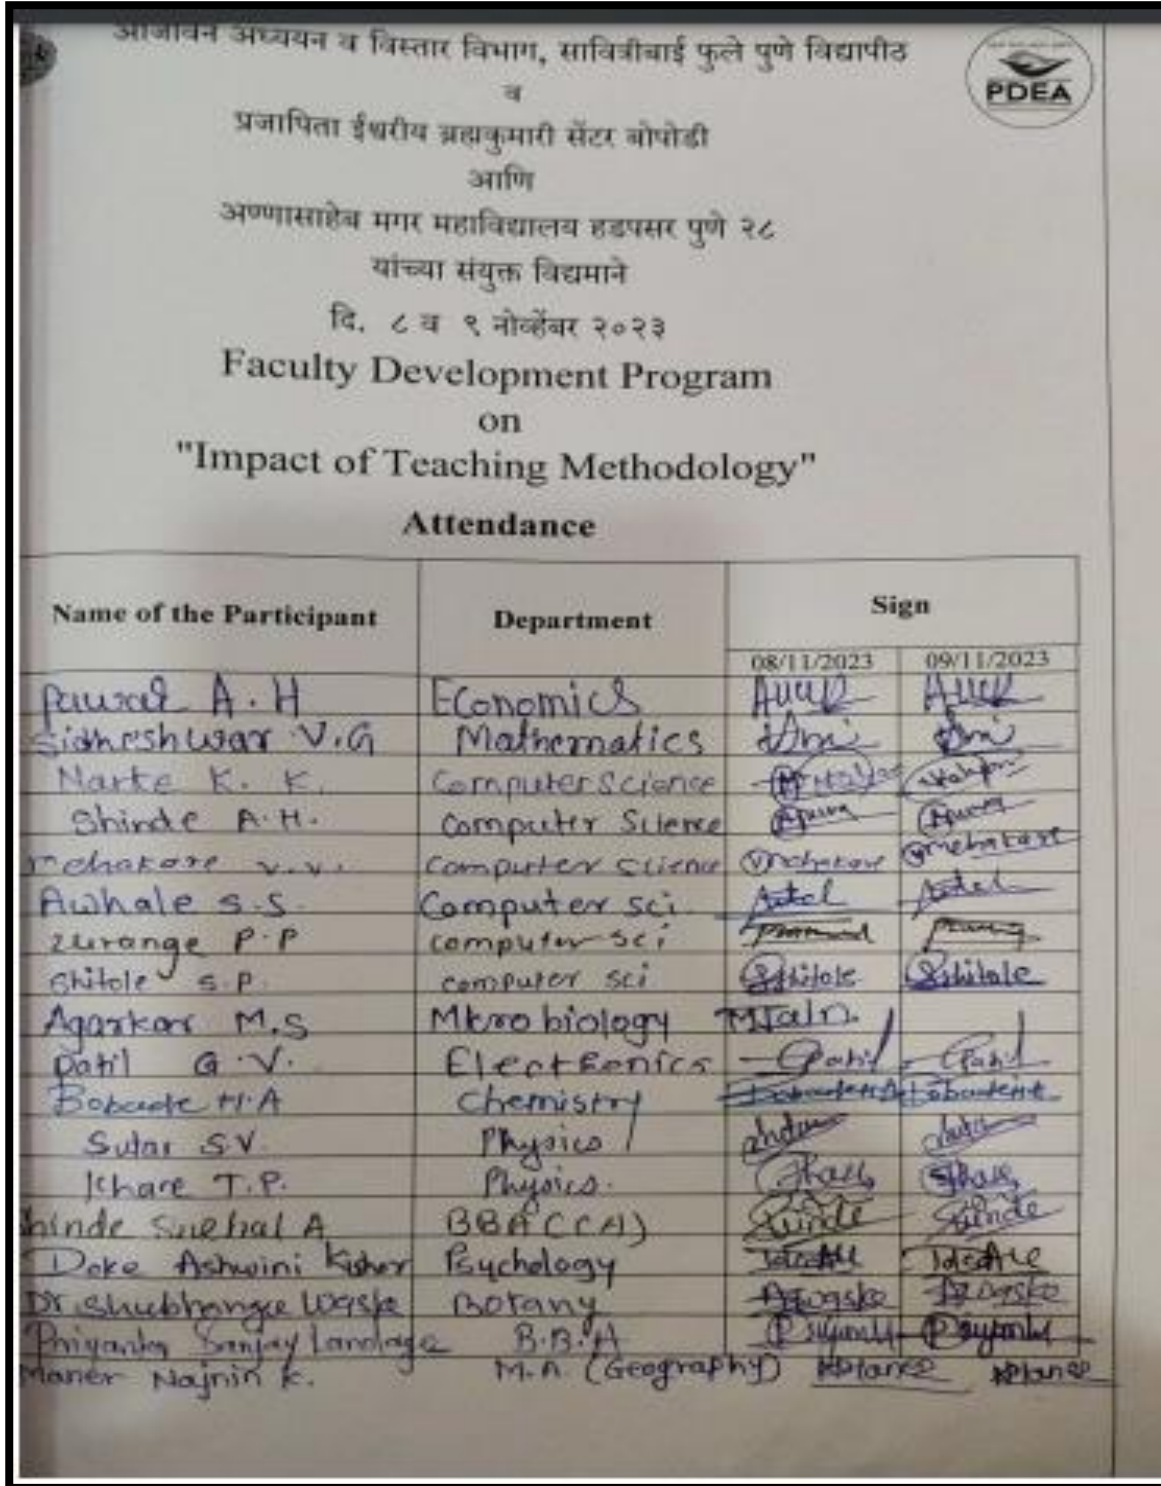 आजीवन अध्ययन व विस्तार विभाग, सावित्रीबाई फुले पुणे विद्यापीठ
PDEA
व
प्रजापिता ईश्वरीय ब्रह्मकुमारी सेंटर बोपोडी
आणि
अण्णासाहेब मगर महाविद्यालय हडपसर पुणे २८
यांच्या संयुक्त विद्यमाने
दि. ८ व ९ नोव्हेंबर २०२३
Faculty Development Program
on
"Impact of Teaching Methodology"
Attendance
Name of the Participant Department Sign
08/11/2023 09/11/2023
A.H Economics
Sidheshwar V.G Mathematics
Narke K. K. Computer Science
Shinde A.H. Computer Science
mehakare v.v. Computer Science mehakare mehakare
Awhale S.S. Computer sci
Zurange P.P computer sci
Shitole S.P. computer sci Shitole Shitole
Agarkar M.S Microbiology
Patil G.V. Electronics Patil Patil
Bobade H.A Chemistry
Sutar S.V. Physics
Khare T.P. Physics.
hinde Snehal A BBA (CCA) Shinde Shinde
Doke Ashwini Kishor Psychology
Dr. Shubhangi Waske Botany
Priyanka Sanjay Landage B.B.A
Maner Najnin K. M.A. (Geography)